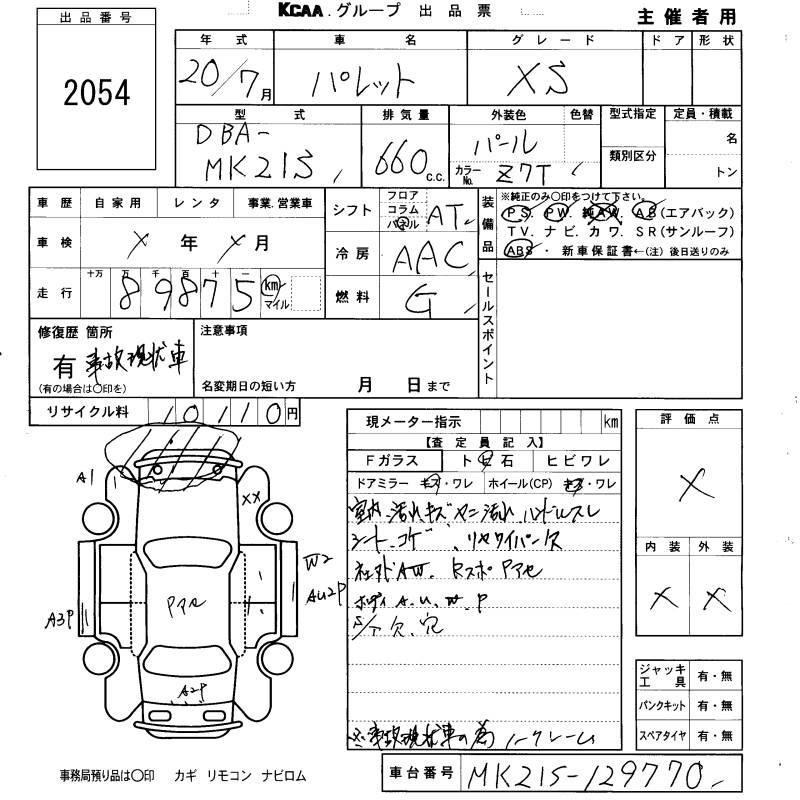 KCAA.グループ 出品票
主催者用
出品番号
2054
年式 車名 グレード ドア 形状
20/7月 パレット XS
型式 排気量 外装色 色替 型式指定 定員・積載
DBA-
MK21S 660 c.c. パール カラーNo. Z7T 類別区分 名 トン
車歴 自家用 レンタ 事業.営業車
シフト フロア コラム パネル AT
装備品 ※純正のみ○印をつけて下さい。
PS. PW. 純AW. AB(エアバック)
TV. ナビ. カワ. SR(サンルーフ)
ABS・ 新車保証書←(注) 後日送りのみ
車検 X年 X月
冷房 AAC
走行 十万 万 千 百 十 一
89875 km マイル
燃料 G
セールスポイント
修復歴 箇所
有 事故現状車
(有の場合は○印を)
注意事項
名変期日の短い方 月 日まで
リサイクル料 10110円
現メーター指示 km
【査定員記入】
Fガラス ト飛石 ヒビワレ
ドアミラー キズ・ワレ ホイール(CP) キズ・ワレ
室内汚れキズ ヤニ汚れ ハンドルスレ
シート コゲ リヤワイパー欠
社外AW. Rスポ Pアセ
ボディ A. U. W. P
S/T 欠. 穴
※事故現状車の為 ノークレーム
評価点
X
内装 外装
X X
ジャッキ工具 有・無
パンクキット 有・無
スペアタイヤ 有・無
A1
XX
W2
AU2P
A3P
Pアセ
A2P
事務局預り品は○印 カギ リモコン ナビロム
車台番号 MK21S-129770